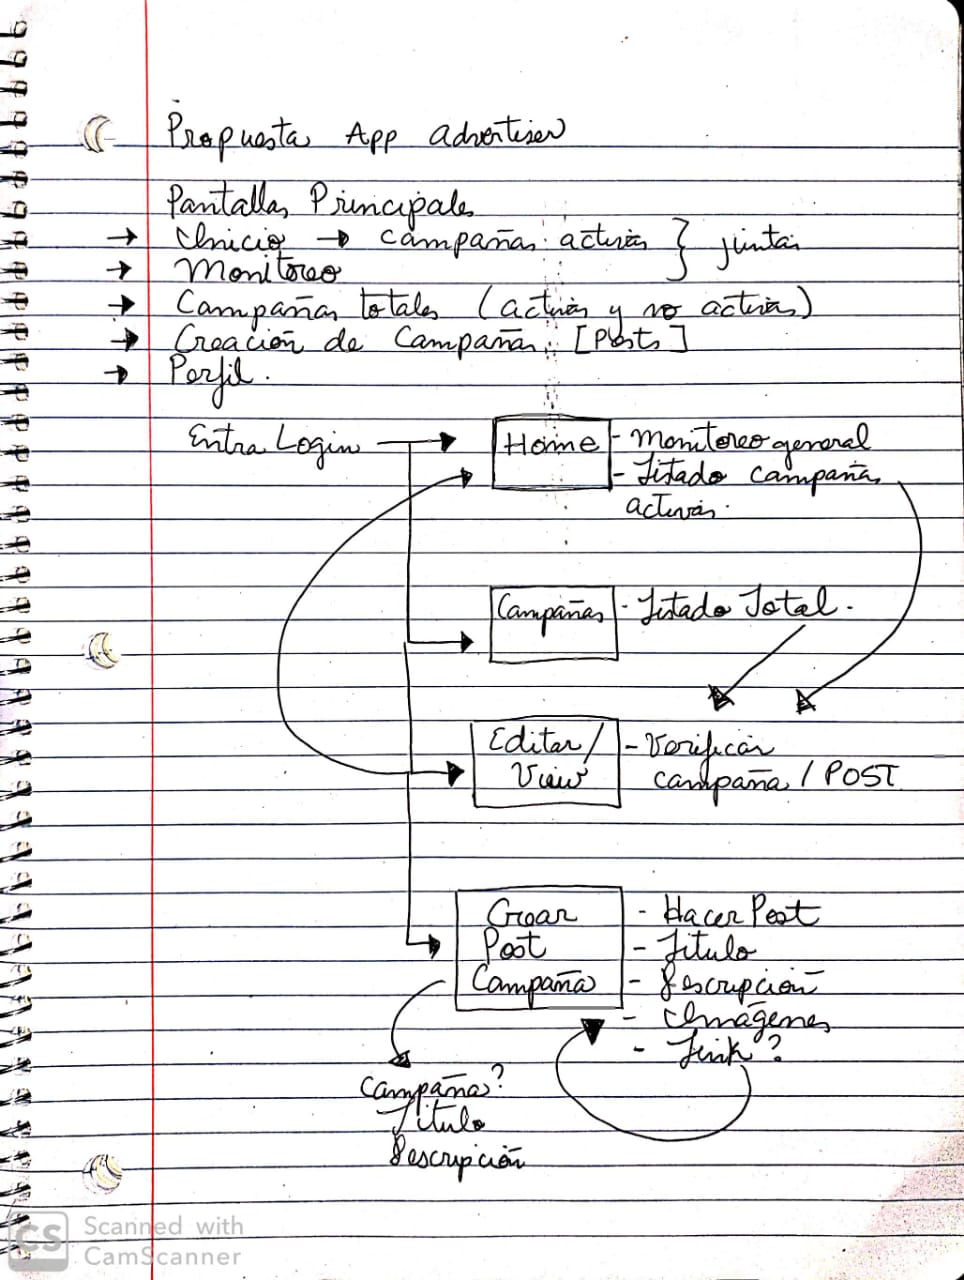 Propuesta App advertiser
Pantallas Principales
→ Inicio → Campañas activas } juntas
→ Monitoreo
→ Campañas totales (activas y no activas)
→ Creación de Campañas [Posts]
→ Perfil.
Entra Login → Home - Monitoreo general
- Listado campañas
activas.
Campañas - Listado Total.
Editar/ - Verificar
View campaña / POST
Crear - Hacer Post
Post - Titulo
Campaña - Descripción
- Imágenes
- Link?
Campaña?
Titulo
Descripción
CS Scanned with
CamScanner